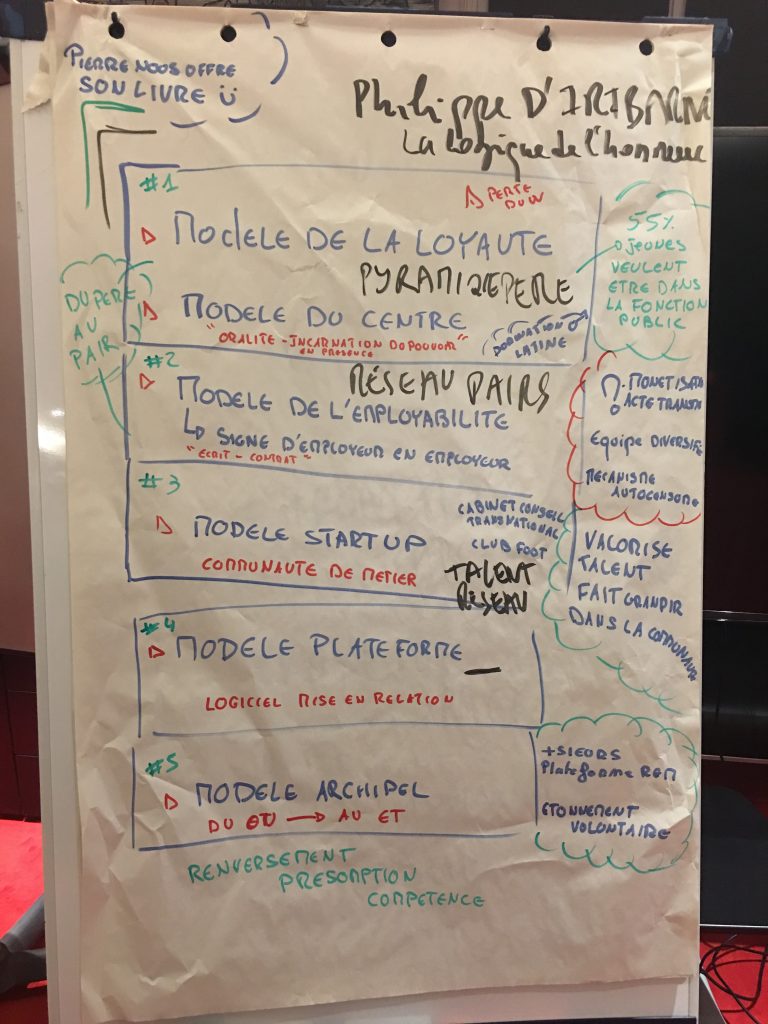 PIERRE NOUS OFFRE
SON LIVRE
Philippe D'IRIBARN
La logique de l'honneur
#1
PERTE
DU W
MODELE DE LA LOYAUTE
PYRAMIDE PERE
MODELE DU CENTRE
"ORALITE - INCARNATION DU POUVOIR"
EN PRESENCE
DOMINATION
LATINE
55%
DJEUNES
VEULENT
ETRE DANS
LA FONCTION
PUBLIC
DU PERE
AU
PAIR
#2
RÉSEAU PAIRS
MODELE DE L'EMPLOYABILITE
SIGNE D'EMPLOYEUR EN EMPLOYEUR
"ECRIT - CONTRAT"
MONETISATI
ACTE TRANSM
Equipe DIVERSIFIE
MECANISME
AUTOCONSOME
#3
CABINET CONSEIL
TRANSNATIONAL
CLUB FOOT
MODELE START UP
COMMUNAUTE DE METIER
TALENT
RÉSEAU
VALORISE
TALENT
FAIT GRANDIR
DANS LA COMMUNAUTE
#4
MODELE PLATEFORME
LOGICIEL MISE EN RELATION
#5
MODELE ARCHIPEL
DU OU → AU ET
+SIEURS
Plateforme
ETONNEMENT
VOLONTAIRE
RENVERSEMENT
PRESOMPTION
COMPETENCE